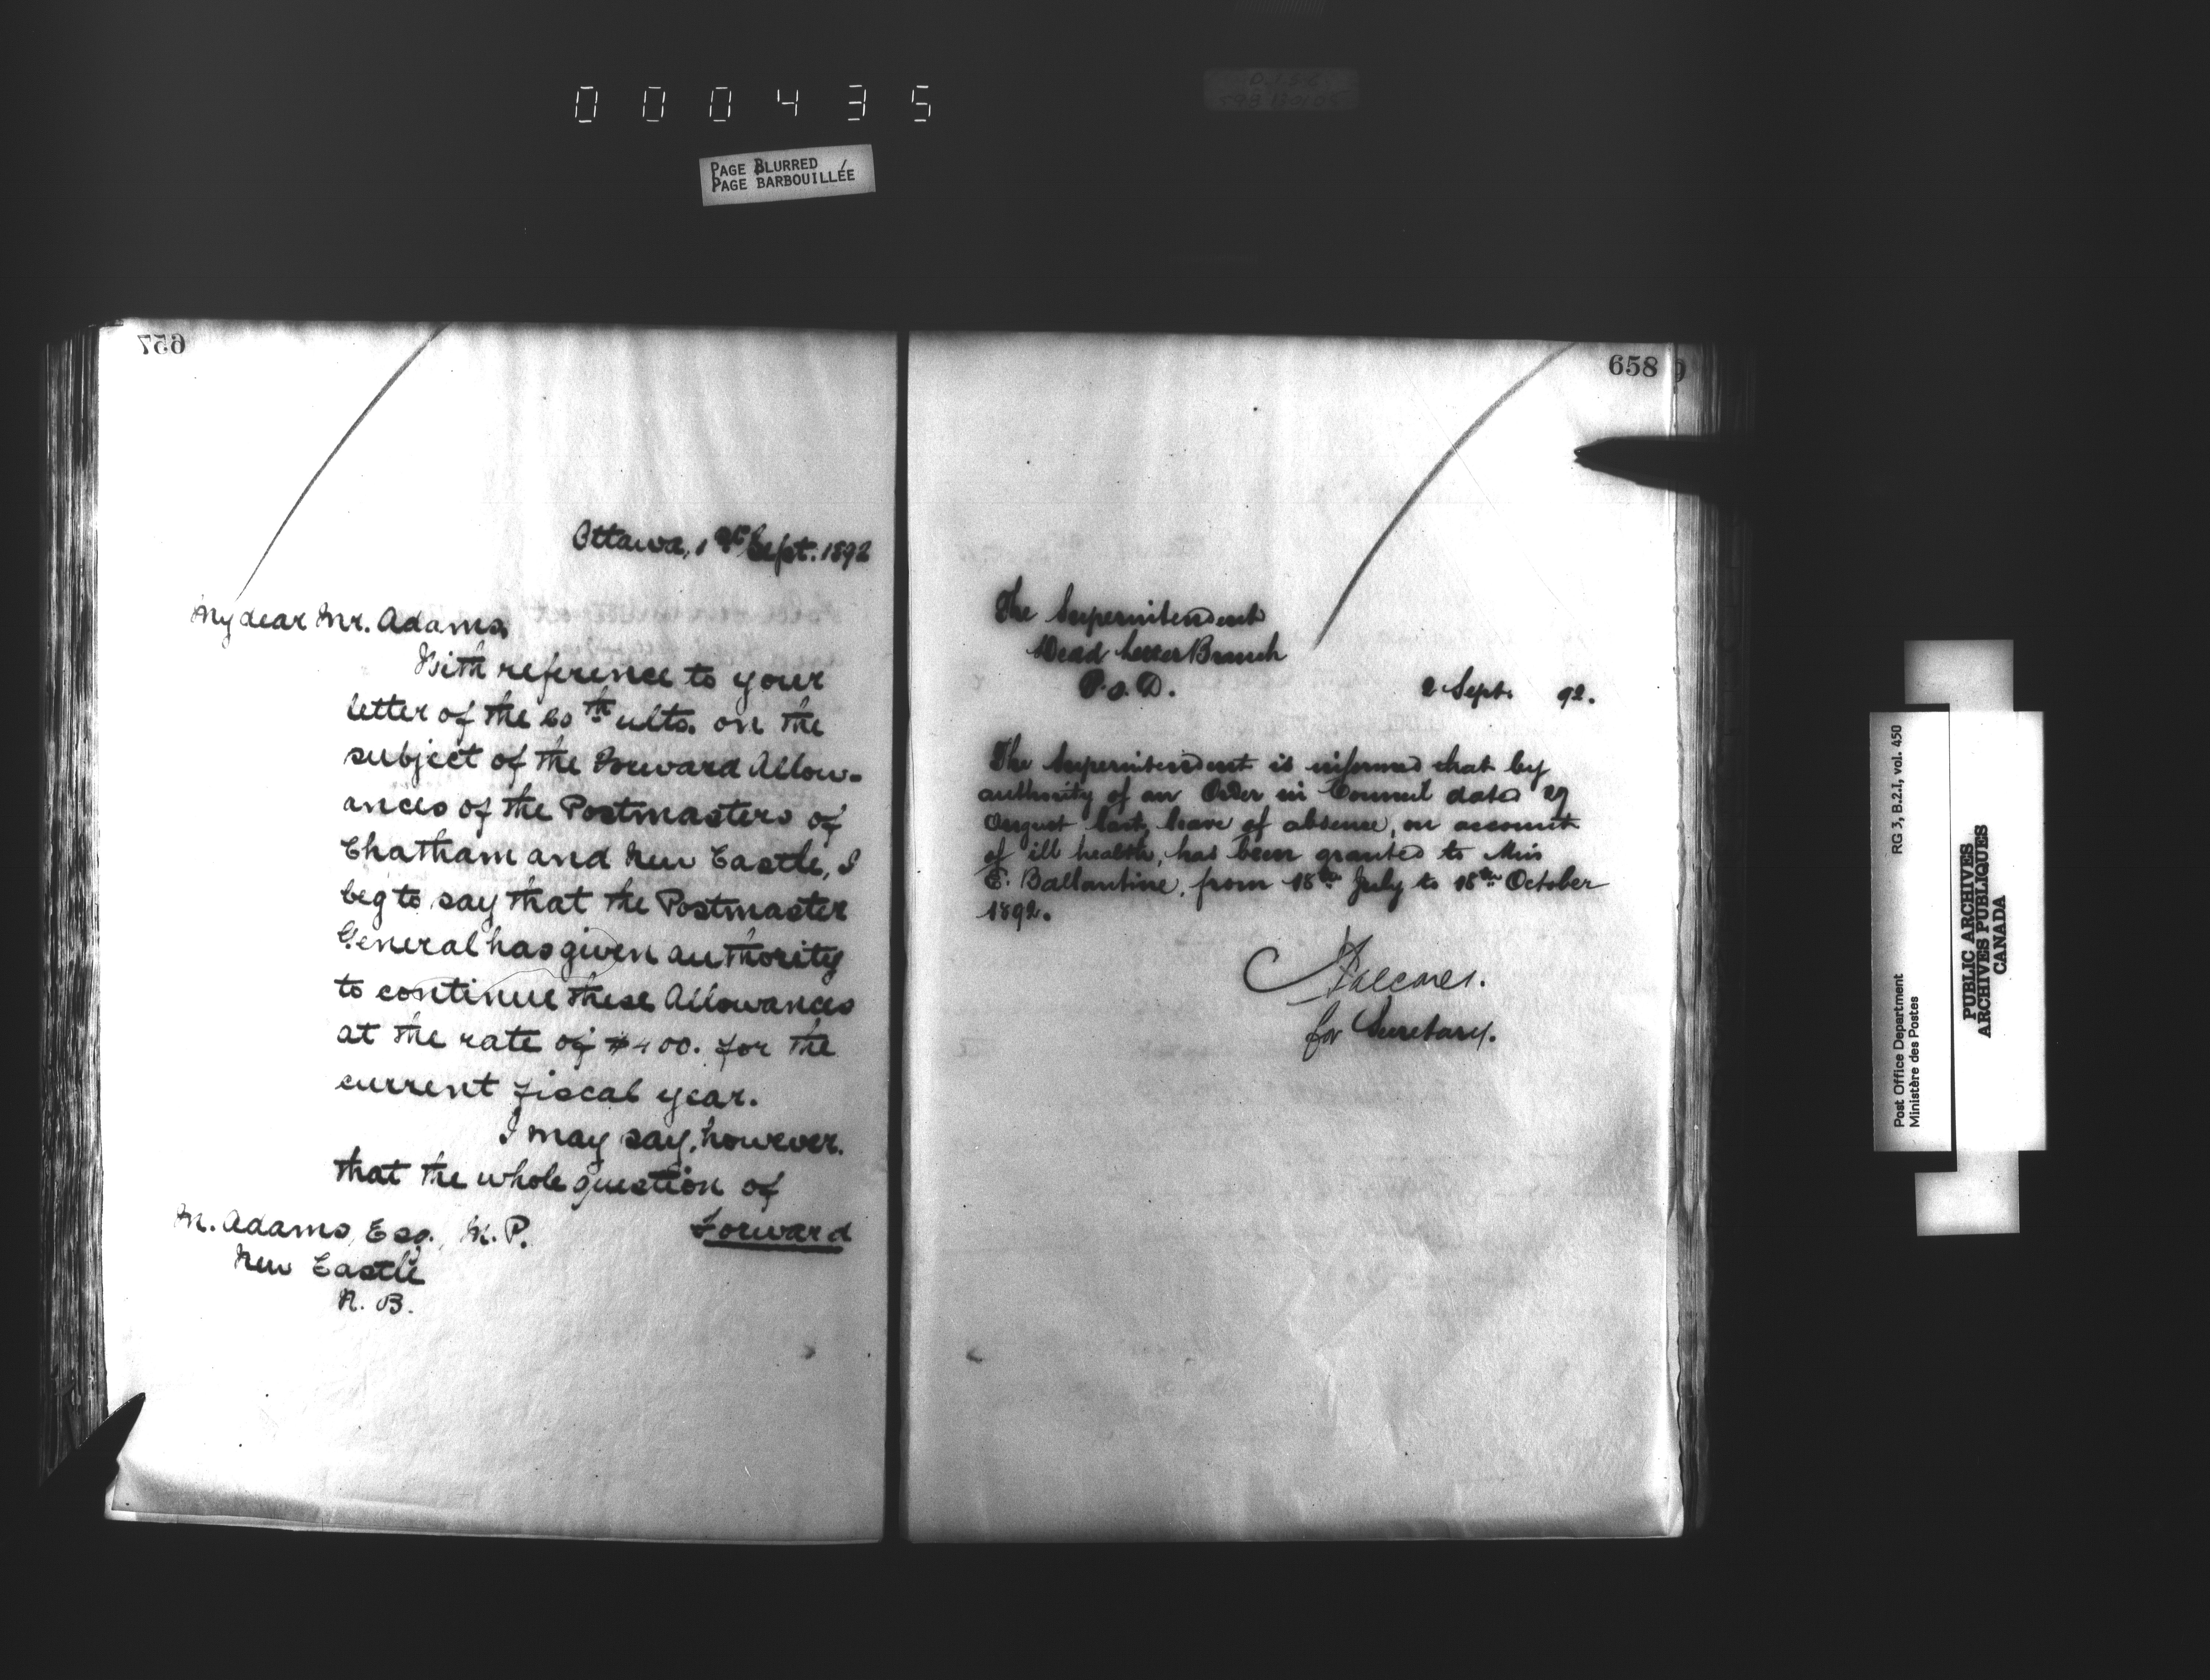 000435
PAGE BLURRED
PAGE BARBOUILLÉE
657
Ottawa, 1st Sept. 1892
My dear Mr. Adams,
With reference to your
letter of the 20th ulto. on the
subject of the Forward Allow-
ances of the Postmasters of
Chatham and New Castle, I
beg to say that the Postmaster
General has given authority
to continue these Allowances
at the rate of $400. for the
current fiscal year.
I may say, however,
that the whole question of
Forward
M. Adams, Esq., M.P.
New Castle
N.B.
658
The Superintendent
Dead Letter Branch
P.O.D.
2 Sept. 92.
The Superintendent is informed that by
authority of an Order in Council dated 29
August last, leave of absence, on account
of ill health, has been granted to Miss
E. Ballantine, from 18th July to 18th October
1892.
for Secretary.
Post Office Department
Ministère des Postes
RG 3, B.2.I, vol. 450
PUBLIC ARCHIVES
ARCHIVES PUBLIQUES
CANADA